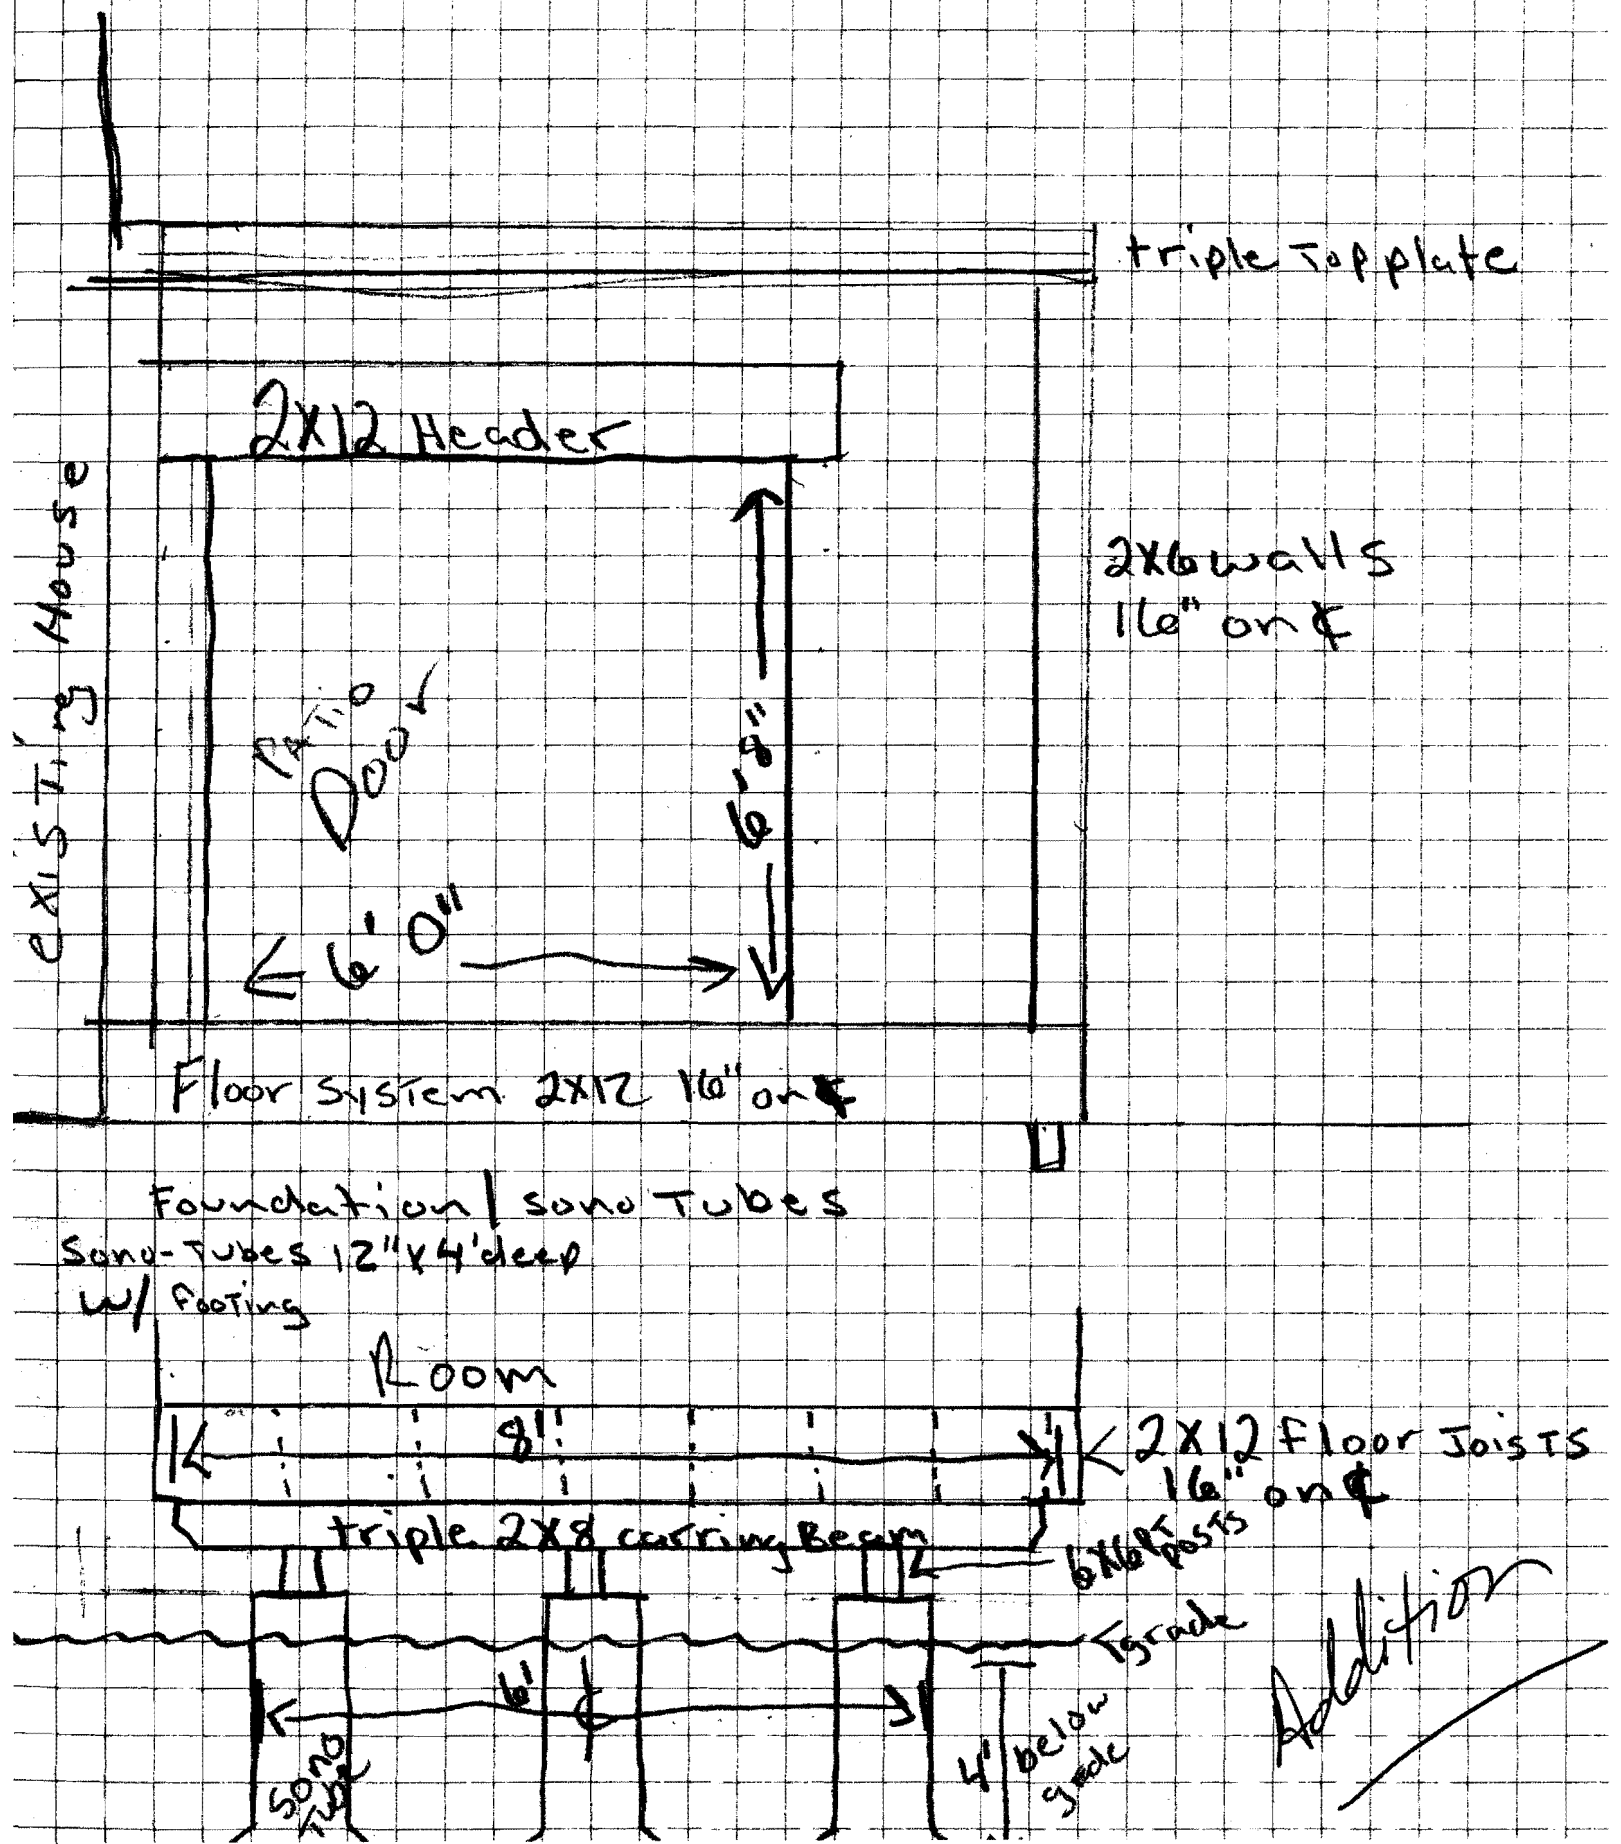 triple Top plate
2X12 Header
existing House
2X6 walls
16" on ₵
PATIO
Door
6'8"
6' 0"
Floor System 2X12 16" on ₵
Foundation / sono Tubes
Sono-Tubes 12" X 4' deep
w/ Footing
Room
8'
2X12 Floor Joists
16" on ₵
triple 2X8 carring Beam
6X6 PT
posts
grade
6'
₵
Sono
Tube
4' below
grade
Addition